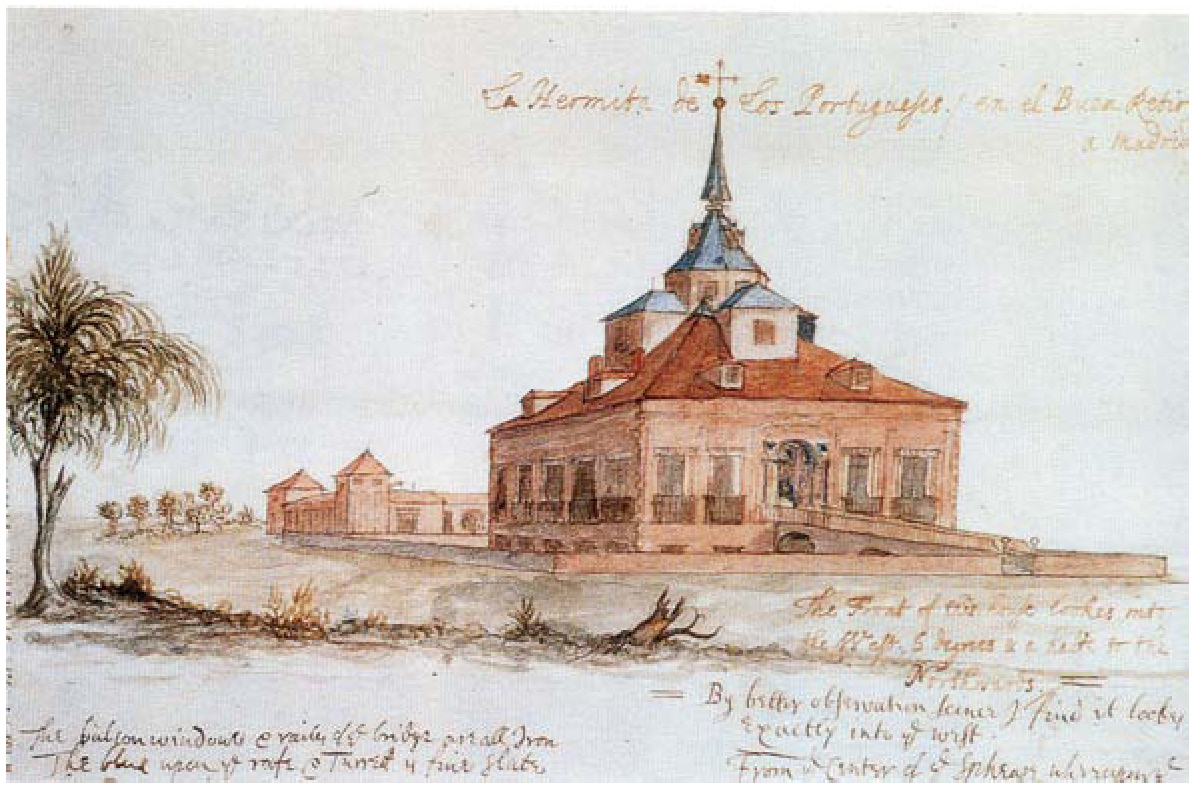 La Hermita de Los Portugueses / en el Buen Retir
a Madrid
The Front of this lookes into
the West, 5 degrees & a halfe to the
Northwards.
By better observation I find it lookes
exactly into ye west.
The balcon windows & railes of ye bridge are all Iron
The blue upon ye rofe & Turret is fine slate
From ye Center of ye Spheare